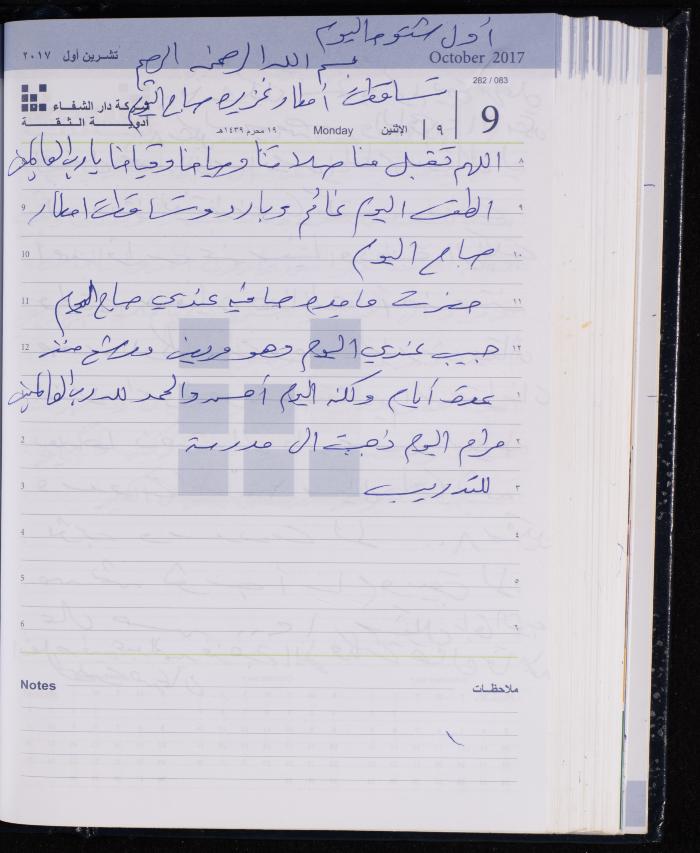 أول شتوة اليوم
تشرين أول ٢٠١٧
October 2017
بسم الله الرحمن الرحيم
282 / 083
تساقطت أمطار غزيرة صباح اليوم
شركة دار الشفاء
أدوية الثقة
١٩ محرم ١٤٣٩هـ
Monday
الإثنين
٩
9
٨ اللهم تقبل منا صلاتنا وصيامنا وقيامنا يا رب العالمين
9 الطقس اليوم غائم وبارد وتساقطت امطار ٩
10 صباح اليوم ١٠
11 حضرت صافية عندي صباح اليوم ١١
12 حبيب عندي اليوم وهو مريض منذ ١٢
عدة أيام ولكنه اليوم أحسن والحمد لله رب العالمين ١
2 مرام اليوم ذهبت الى مدرسة ٢
3 للتدريب ٣
4 ٤
5 ٥
6 ٦
Notes
ملاحظات